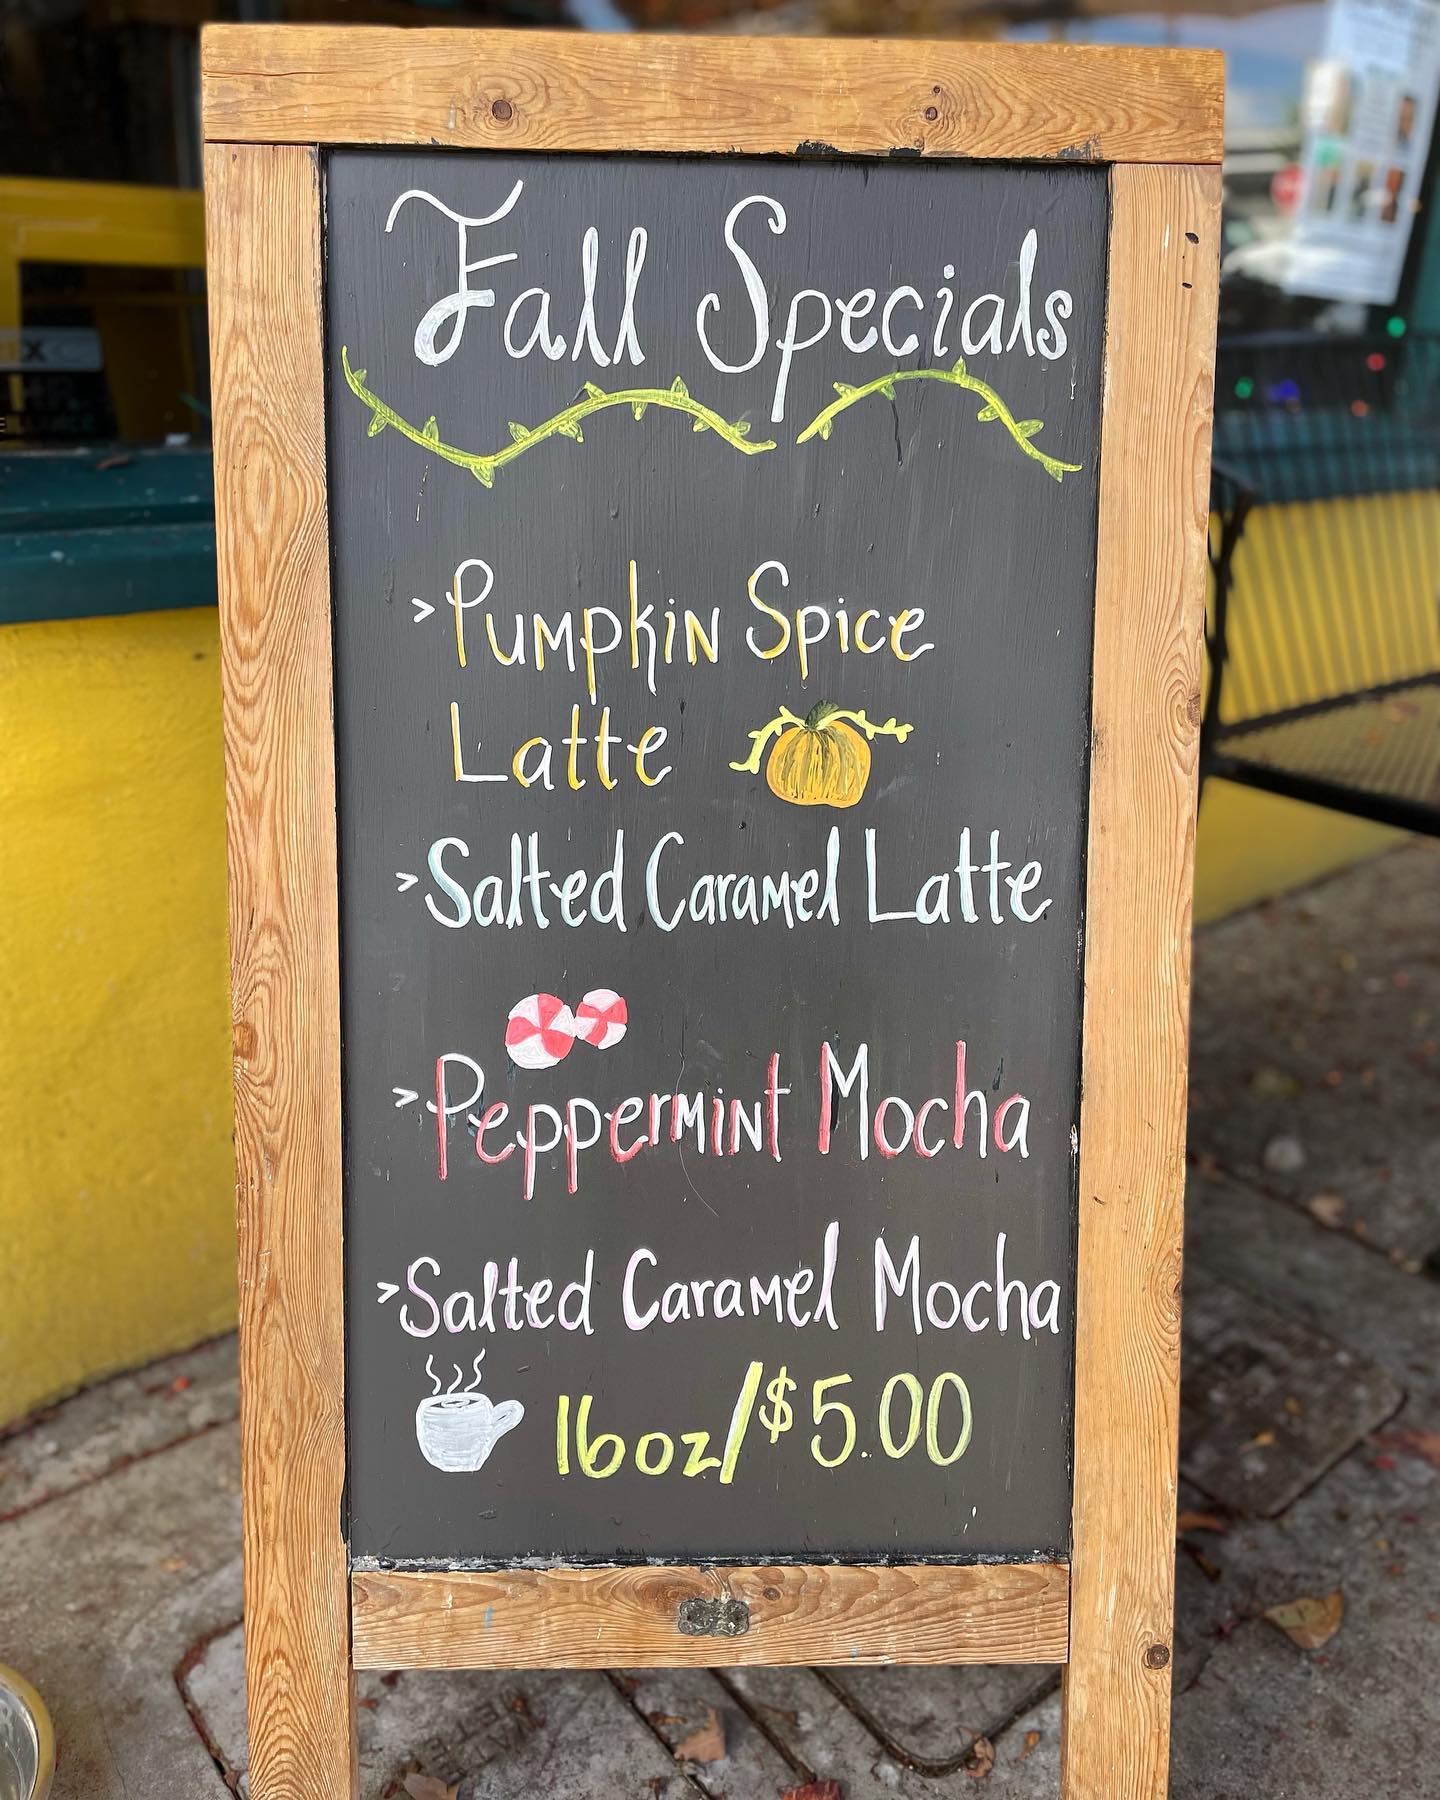 Fall Specials
> Pumpkin Spice
Latte
> Salted Caramel Latte
> Peppermint Mocha
> Salted Caramel Mocha
16oz/$5.00